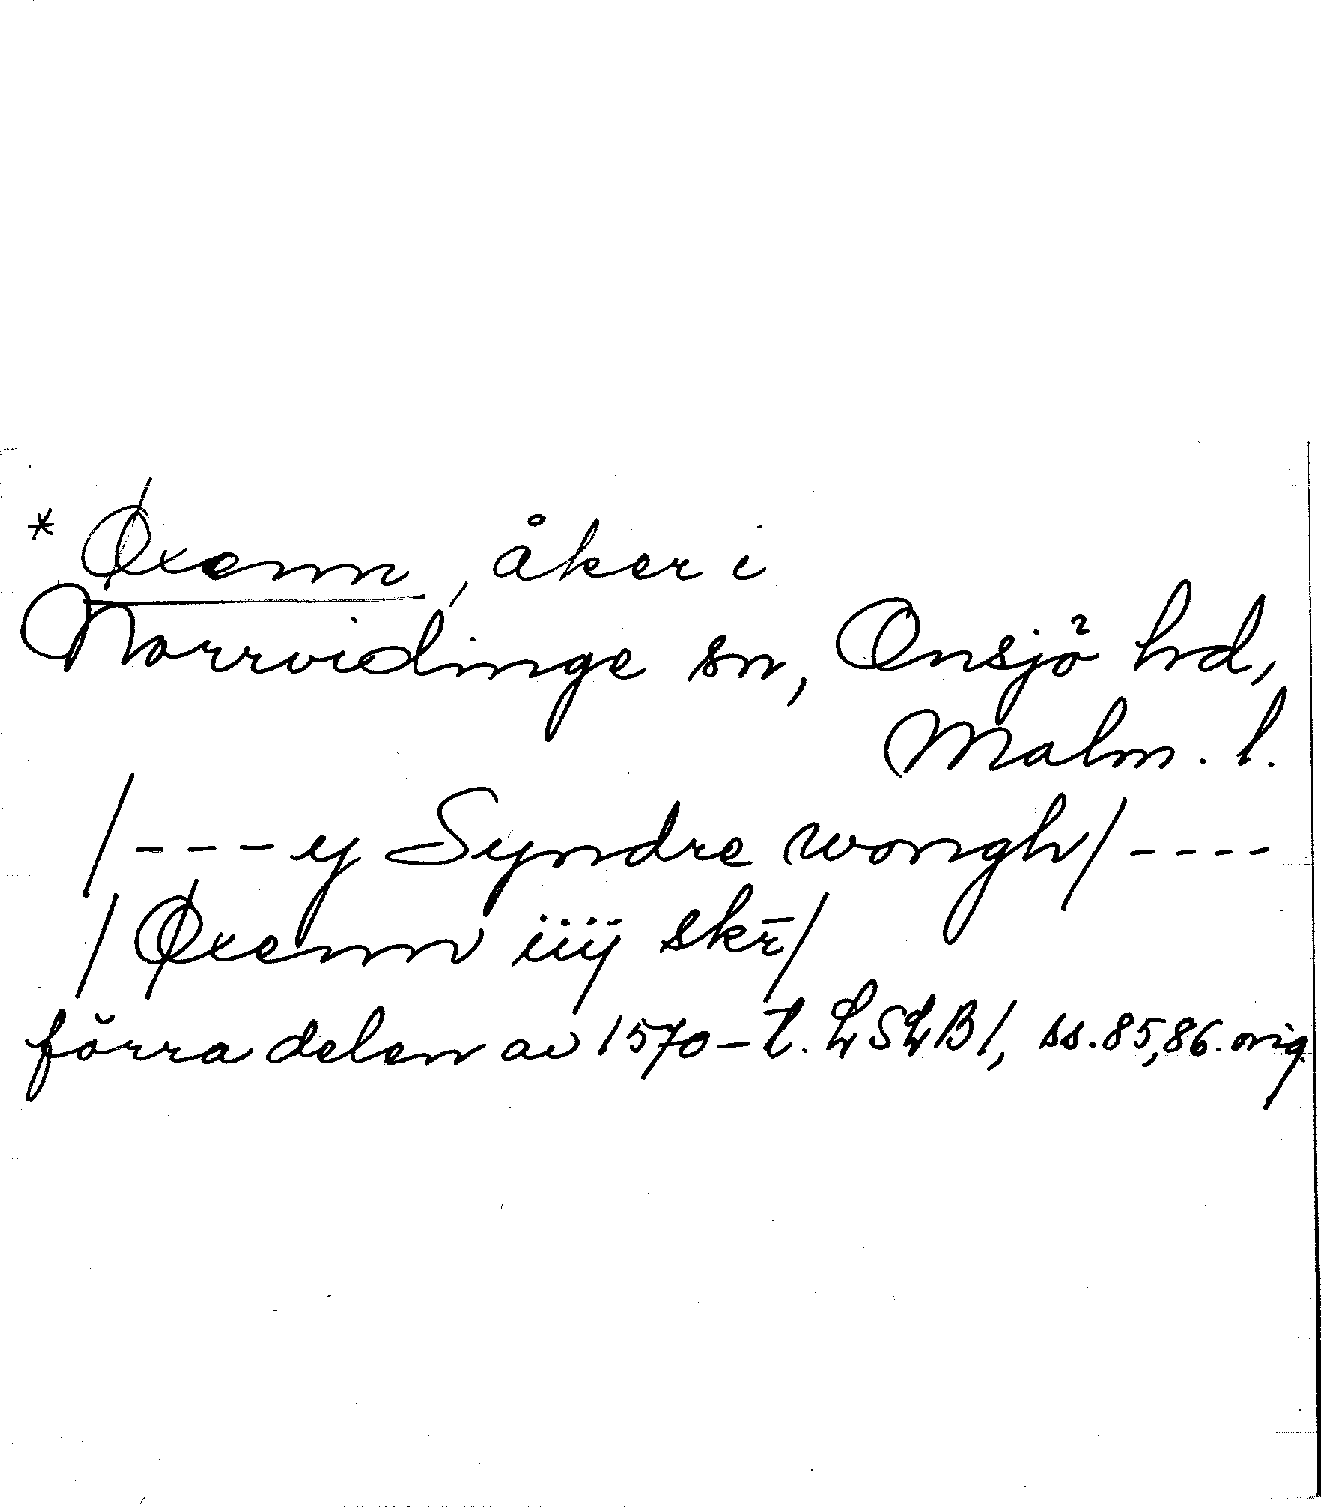 * Øxenn, åker i
Norrvidinge sn, Onsjö hd,
Malm. l.
/---y Syndre wongh/----
/Øxenn iiij skr̄/
förra delen av 1570-t. LSLB1, ss.85,86.orig.